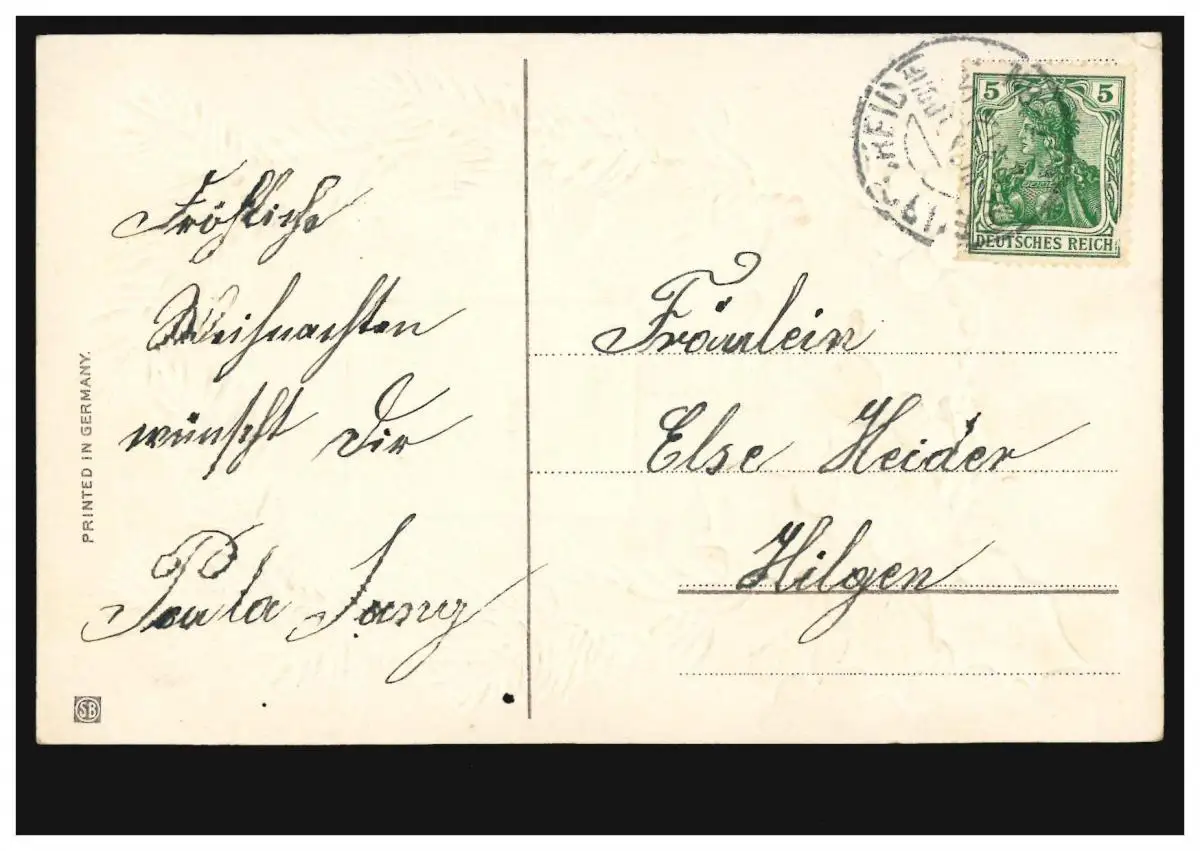 Fröhliche
Weihnachten
wünscht Dir
Paula Jung
PRINTED IN GERMANY.
SB
5 5
DEUTSCHES REICH
Fräulein
Else Heider
Hilgen